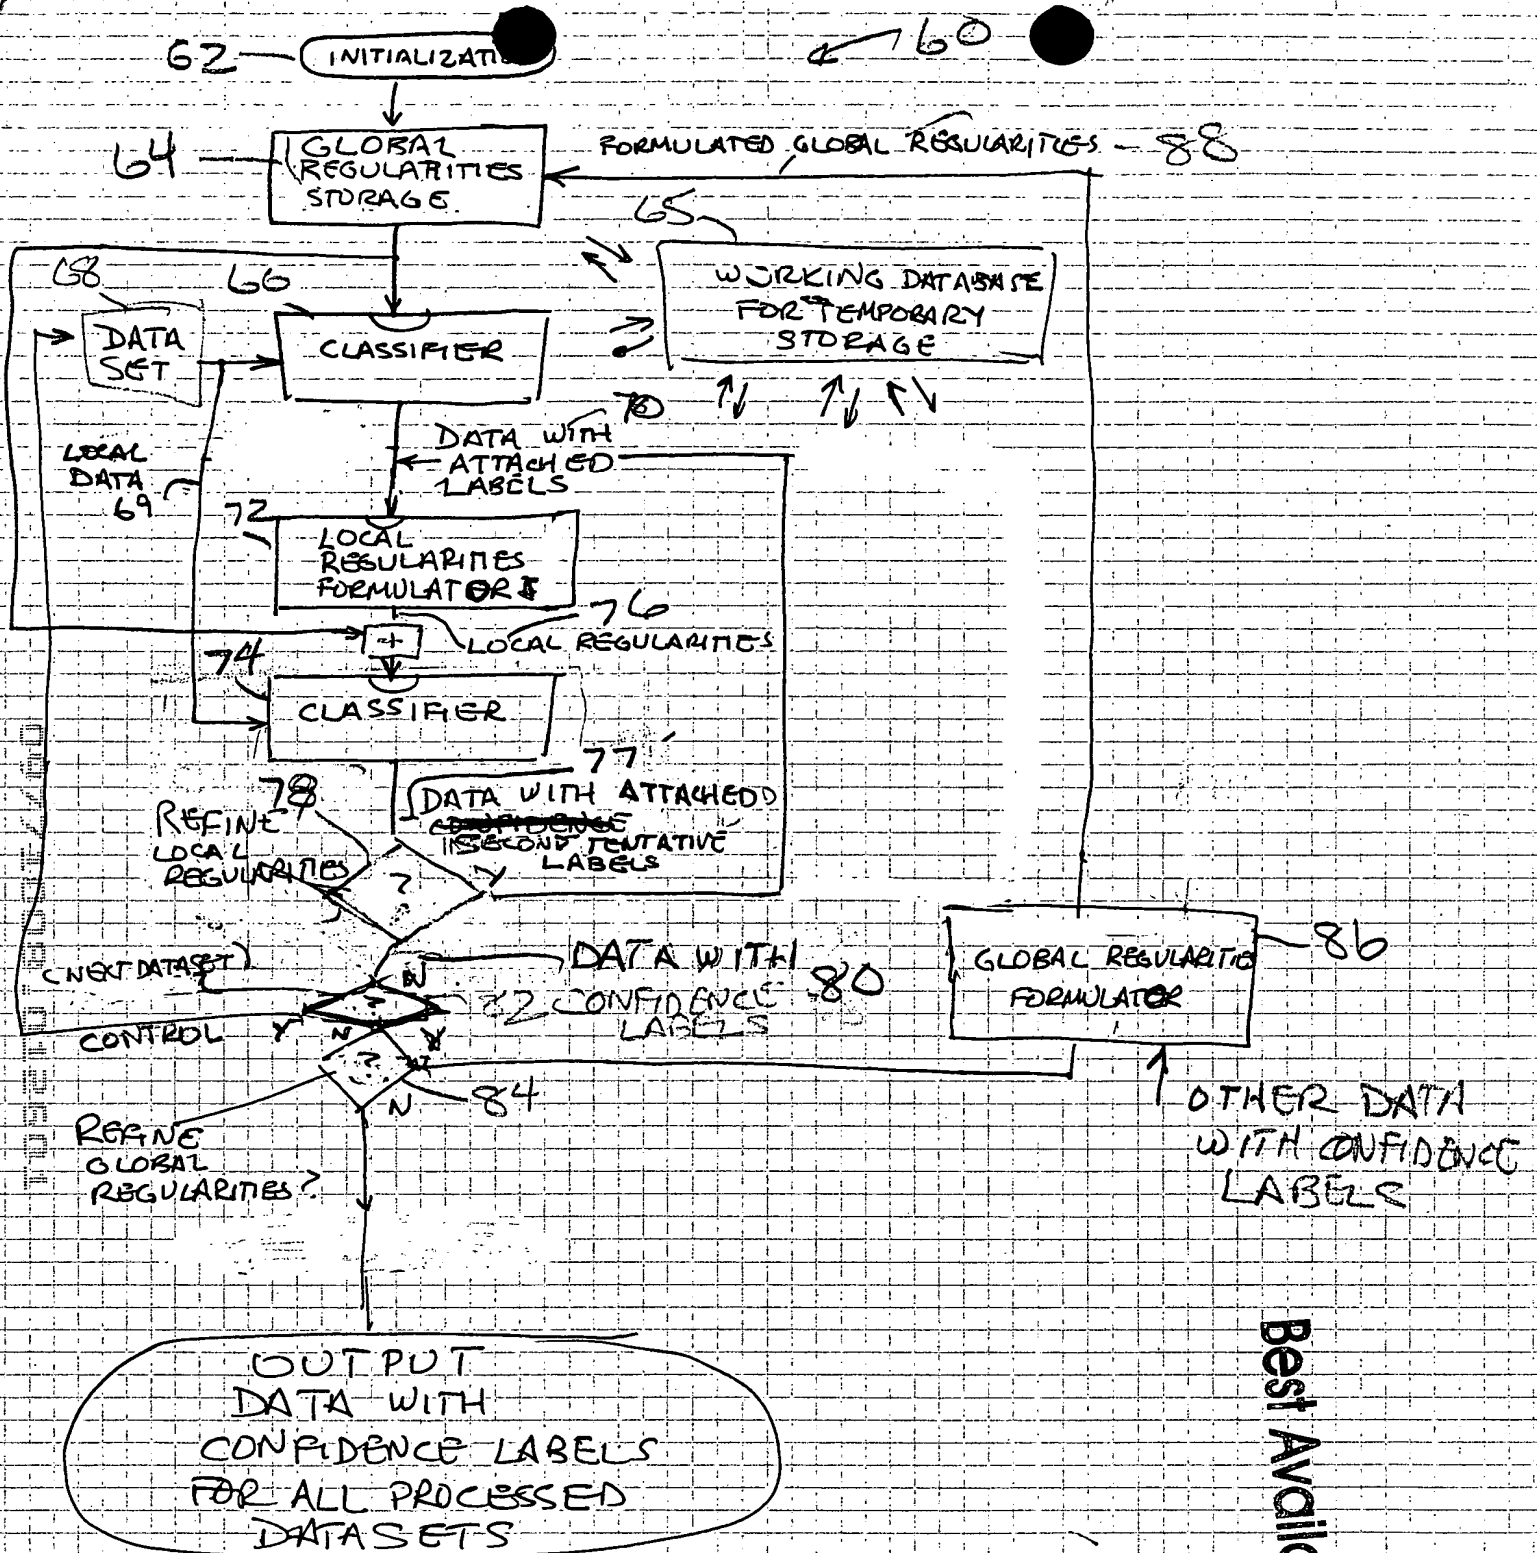 60
62
64
GLOBAL
REGULARITIES
STORAGE
FORMULATED GLOBAL REGULARITIES
88
65
WORKING DATABASE
FOR TEMPORARY
STORAGE
68
DATA
SET
66
CLASSIFIER
70
DATA WITH
ATTACHED
LABELS
LOCAL
DATA
69
72
LOCAL
REGULARITIES
FORMULATOR
76
+
LOCAL REGULARITIES
74
CLASSIFIER
77
DATA WITH ATTACHED
SECOND TENTATIVE
LABELS
78
REFINE
LOCAL
REGULARITIES
?
Y
N
(NEXT DATASET)
?
82
DATA WITH
CONFIDENCE
LABELS
80
CONTROL
Y
N
?
84
N
REFINE
GLOBAL
REGULARITIES?
GLOBAL REGULARITIE
FORMULATOR
86
OTHER DATA
WITH CONFIDENCE
LABELS
OUTPUT
DATA WITH
CONFIDENCE LABELS
FOR ALL PROCESSED
DATASETS
Best